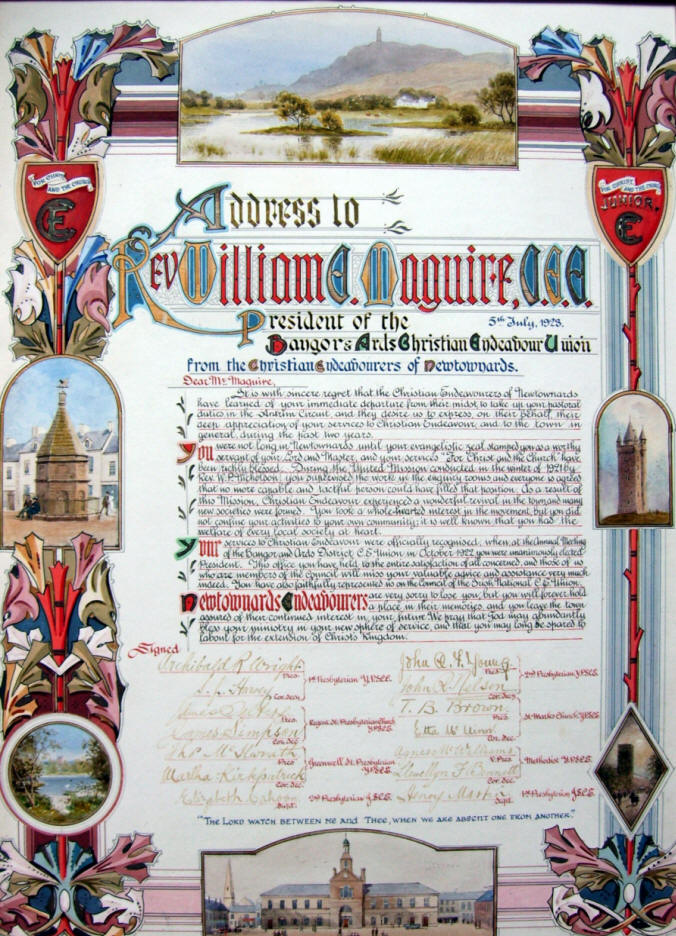 FOR CHRIST AND THE CHURCH
CE
FOR CHRIST AND THE CHURCH
JUNIOR.
CE
Address to
Rev William E. Maguire, C.E.E.
5th July, 1923.
President of the
Bangor & Ards Christian Endeavour Union
from the Christian Endeavourers of Newtownards.
Dear Mr. Maguire,
It is with sincere regret that the Christian Endeavourers of Newtownards
have learned of your immediate departure from their midst, to take up your pastoral
duties in the Antrim Circuit, and they desire us to express, on their behalf, their
deep appreciation of your services to Christian Endeavour, and to the town in
general, during the past two years.
You were not long in Newtownards until your evangelistic zeal stamped you as a worthy
servant of your Lord and Master, and your services "For Christ and the Church" have
been richly blessed. During the United Mission conducted in the winter of 1921 by
Rev. W. P. Nicholson, you supervised the work in the enquiry rooms and everyone is agreed
that no more capable and tactful person could have filled that position. As a result of
this Mission, Christian Endeavour experienced a wonderful revival in the town, and many
new societies were formed. You took a whole-hearted interest in the movement, but you did
not confine your activities to your own community; it is well known that you had the
welfare of every local society at heart.
Your services to Christian Endeavour were officially recognised, when, at the Annual Meeting
of the Bangor and Ards District C.E. Union in October 1922, you were unanimously elected
President. This office you have held to the entire satisfaction of all concerned, and those of us
who are members of the Council will miss your valuable advice and assistance very much
indeed. You have also faithfully represented us on the Council of the Irish National C.E. Union.
Newtownards Endeavourers are very sorry to lose you, but you will forever hold
a place in their memories, and you leave the town
assured of their continued interest in your future. We pray that God may abundantly
bless your ministry in your new sphere of service, and that you may long be spared to
labour for the extension of Christ's Kingdom.
Signed
Archibald R. Wright Pres.
S. J. Harvey Cor. Sec.
1st Presbyterian Y.P.S.C.E.
John Q. L. Young Pres.
John R. Nelson Cor. Sec.
2nd Presbyterian Y.P.S.C.E.
James Pres.
James Simpson Cor. Sec.
Regent St. Presbyterian Church Y.P.S.C.E.
T. B. Brown Pres.
Etta Cor. Sec.
St. Marks Church Y.P.S.C.E.
Thos. McIlwrath Pres.
Martha Kirkpatrick Cor. Sec.
Greenwell St. Presbyterian Y.P.S.C.E.
Agnes McWilliams V. Pres.
Llewellyn F. Bonnett Cor. Sec.
Methodist Y.P.S.C.E.
Elizabeth Cahoon Supt.
2nd Presbyterian J.S.C.E.
Henry Supt.
1st Presbyterian J.S.C.E.
"The Lord watch between me and Thee, when we are absent one from another."